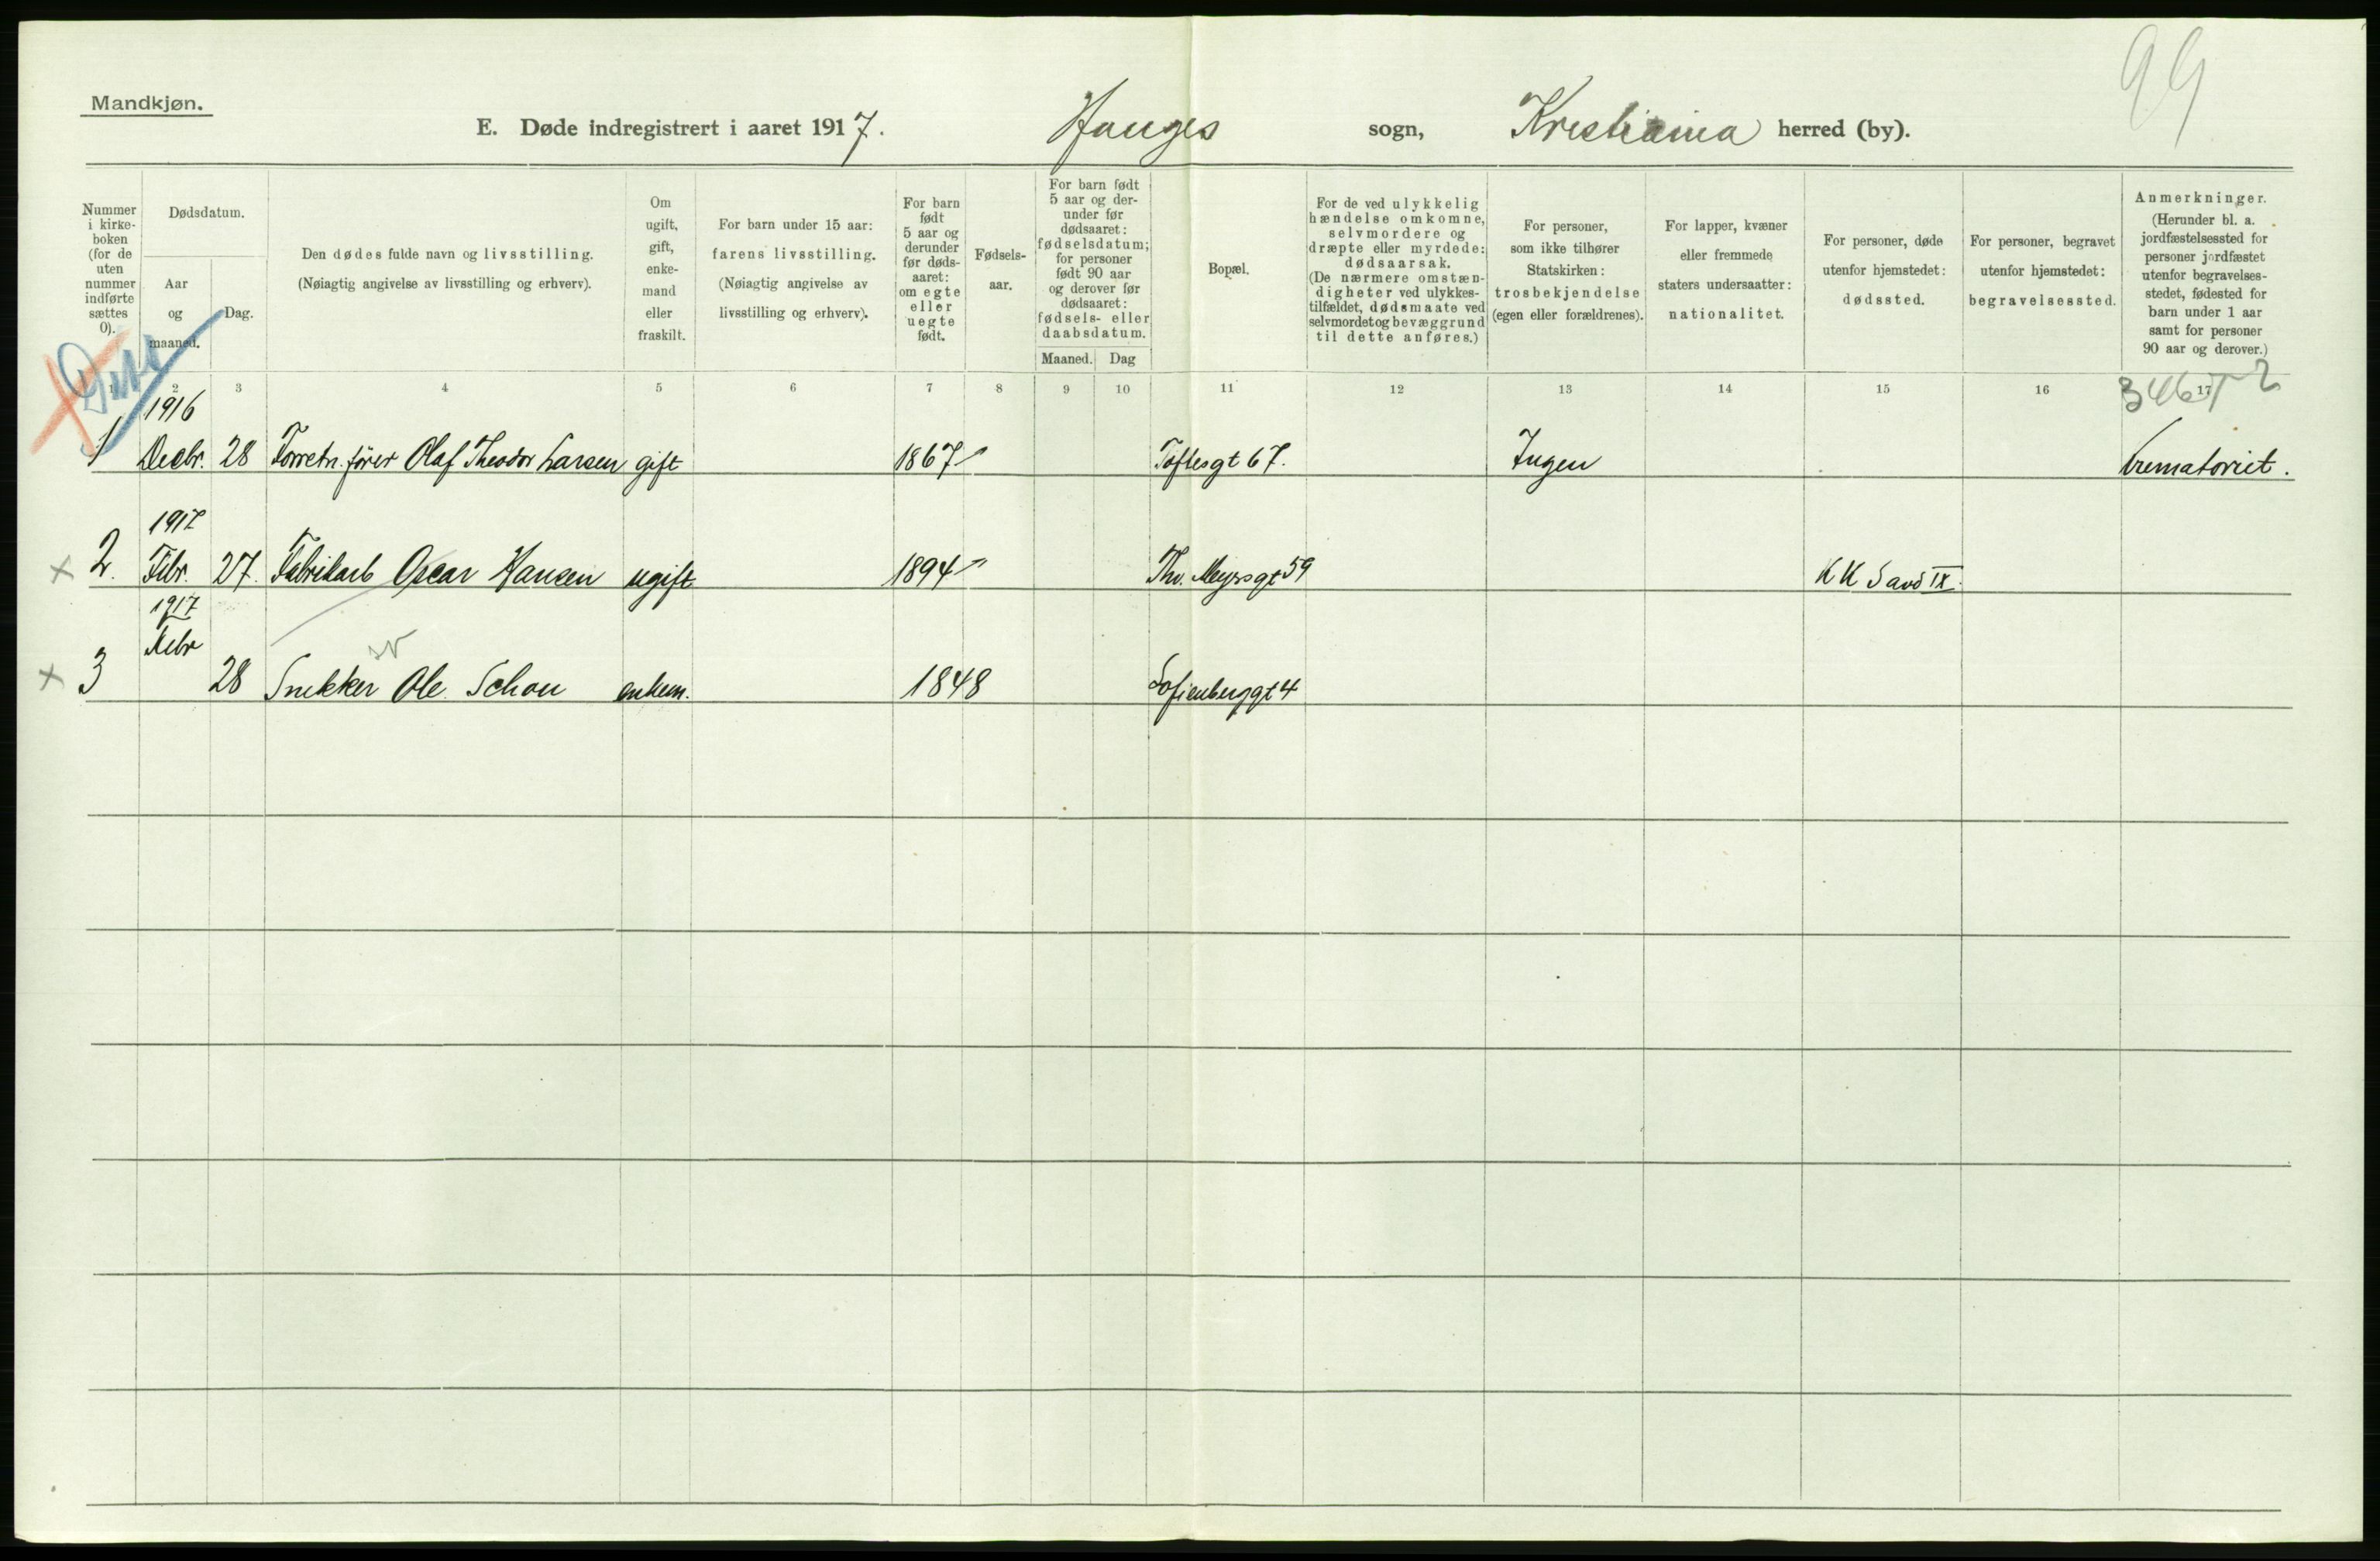 99
Mandkjøn.
E. Døde indregistrert i aaret 1917. Hauges sogn, Kristiania herred (by).
Nummer i kirke-boken (for de uten nummer indførte sættes 0).
Dødsdatum.
Aar og maaned.
Dag.
Den dødes fulde navn og livsstilling.
(Nøiagtig angivelse av livsstilling og erhverv).
Om ugift, gift, enke-mand eller fraskilt.
For barn under 15 aar:
farens livsstilling.
(Nøiagtig angivelse av livsstilling og erhverv).
For barn født 5 aar og derunder før døds-aaret: om egte eller uegte født.
Fødsels-aar.
For barn født 5 aar og der-under før dødsaaret: fødselsdatum; for personer født 90 aar og derover før dødsaaret: fødsels- eller daabsdatum.
Maaned. Dag
Bopæl.
For de ved ulykkelig hændelse omkomne, selvmordere og dræpte eller myrdede: dødsaarsak.
(De nærmere omstæn-digheter ved ulykkes-tilfældet, dødsmaate ved selvmordet og bevæggrund til dette anføres.)
For personer, som ikke tilhører Statskirken: trosbekjendelse (egen eller forældrenes).
For lapper, kvæner eller fremmede staters undersaatter: nationalitet.
For personer, døde utenfor hjemstedet: dødssted.
For personer, begravet utenfor hjemstedet: begravelsessted.
Anmerkninger.
(Herunder bl. a. jordfæstelsessted for personer jordfæstet utenfor begravelses-stedet, fødested for barn under 1 aar samt for personer 90 aar og derover.)
1 2 3 4 5 6 7 8 9 10 11 12 13 14 15 16 17
1916
1 Decbr. 28 Forretn.fører Olaf Theodor Larsen gift 1867 Toftesgt 67. Ingen Crematoriet.
1917
x 2. Febr. 27. Fabrikarb Oscar Hansen ugift 1894 Thv. Meyersgt 59 KK S avd IX.
1917
Febr
x 3 28 Snekker Ole Schou enkem. 1848 Sofienberggt 4